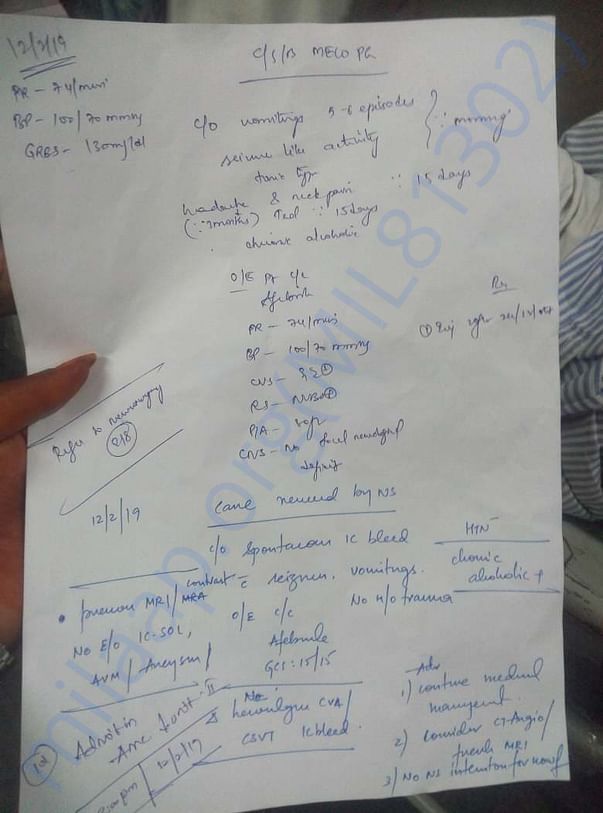 12/2/19
C/S/B MECO PG
PR - 74/min
BP - 100/70 mmHg
GRBS - 130mg/dl
C/O vomitings 5-6 episodes
seizure like activity
tonic type
∵ morning
headache & neck pain ∵ 15 days
(∵ months) ∵ 15 days
chronic alcoholic
O/E Pt C/C
Afebrile
PR - 74/min
BP - 100/70 mmHg
CVS - S1S2 +
RS - NVBS +
P/A - soft
CNS - No focal neurological
deficit
Rx
① Inj
Refer to neurosurgery
218
12/2/19
Case reviewed by NS
C/O Spontaneous IC bleed
c̄ seizures, vomitings.
No H/O trauma
HTN
chronic
alcoholic +
• previous MRI/ contrast MRA
No E/O IC-SOL,
AVM / Aneurysm /
O/E C/C
Afebrile
GCS: 15/15
CVA/
CSVT IC bleed.
Admit in
AMC
12/2/19
Adv
1) continue medical
management.
2) consider CT-Angio/
MRI
3) No NS intervention for now
milaap.org(MIL81302)